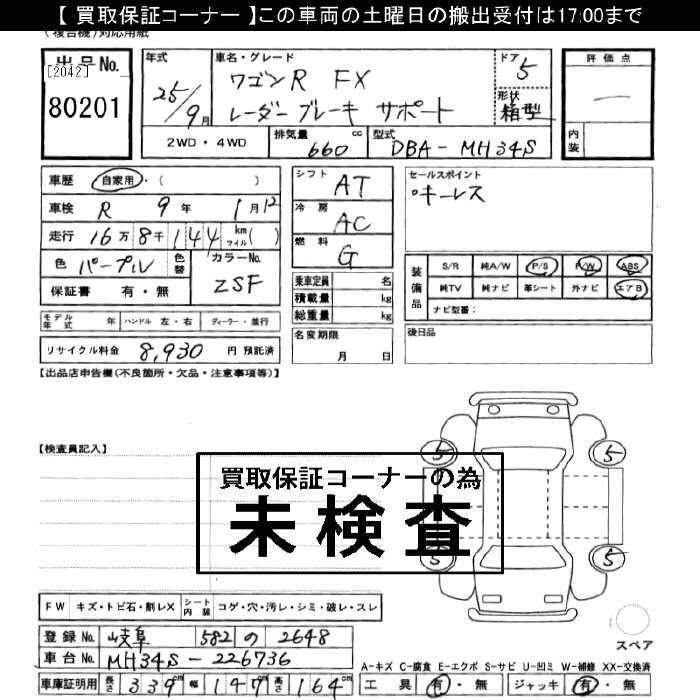 【 買取保証コーナー 】この車両の土曜日の搬出受付は17:00まで
(複合機)対応用紙
出品No.
[2042]
80201
年式
25/9月
車名・グレード
ワゴンR FX
レーダーブレーキ サポート
ドア
5
形状
箱型
評価点
—
内装
2WD・4WD
排気量
660 cc
型式
DBA-MH34S
車歴 自家用・( )
車検 R 9年 1月12
走行 16万8千144 km マイル( )
色 パープル
色替
カラーNo.
ZSF
保証書 有・無
シフト
AT
冷房
AC
燃料
G
乗車定員 名
積載量 kg
総重量 kg
名変期限
月 日
セールスポイント
・キーレス
装備品
S/R 純A/W P/S P/W ABS
純TV 純ナビ 革シート 外ナビ エアB
ナビ型番:
後日品
モデル年式 年 ハンドル 左・右 ディーラー・並行
リサイクル料金 8,930 円 預託済
【出品店申告欄(不良箇所・欠品・注意事項等)】
【検査員記入】
買取保証コーナーの為
未検査
5
5
5
5
FW キズ・トビ石・割レX シート内装 コゲ・穴・汚レ・シミ・破レ・スレ
登録No. 岐阜 582 の 2648
車台No. MH34S-226736
車庫証明用 長さ 339cm 幅 147cm 高さ 164cm
スペア
A-キズ C-腐食 E-エクボ S-サビ U-凹ミ W-補修 XX-交換済
工具 有・無 ジャッキ 有・無